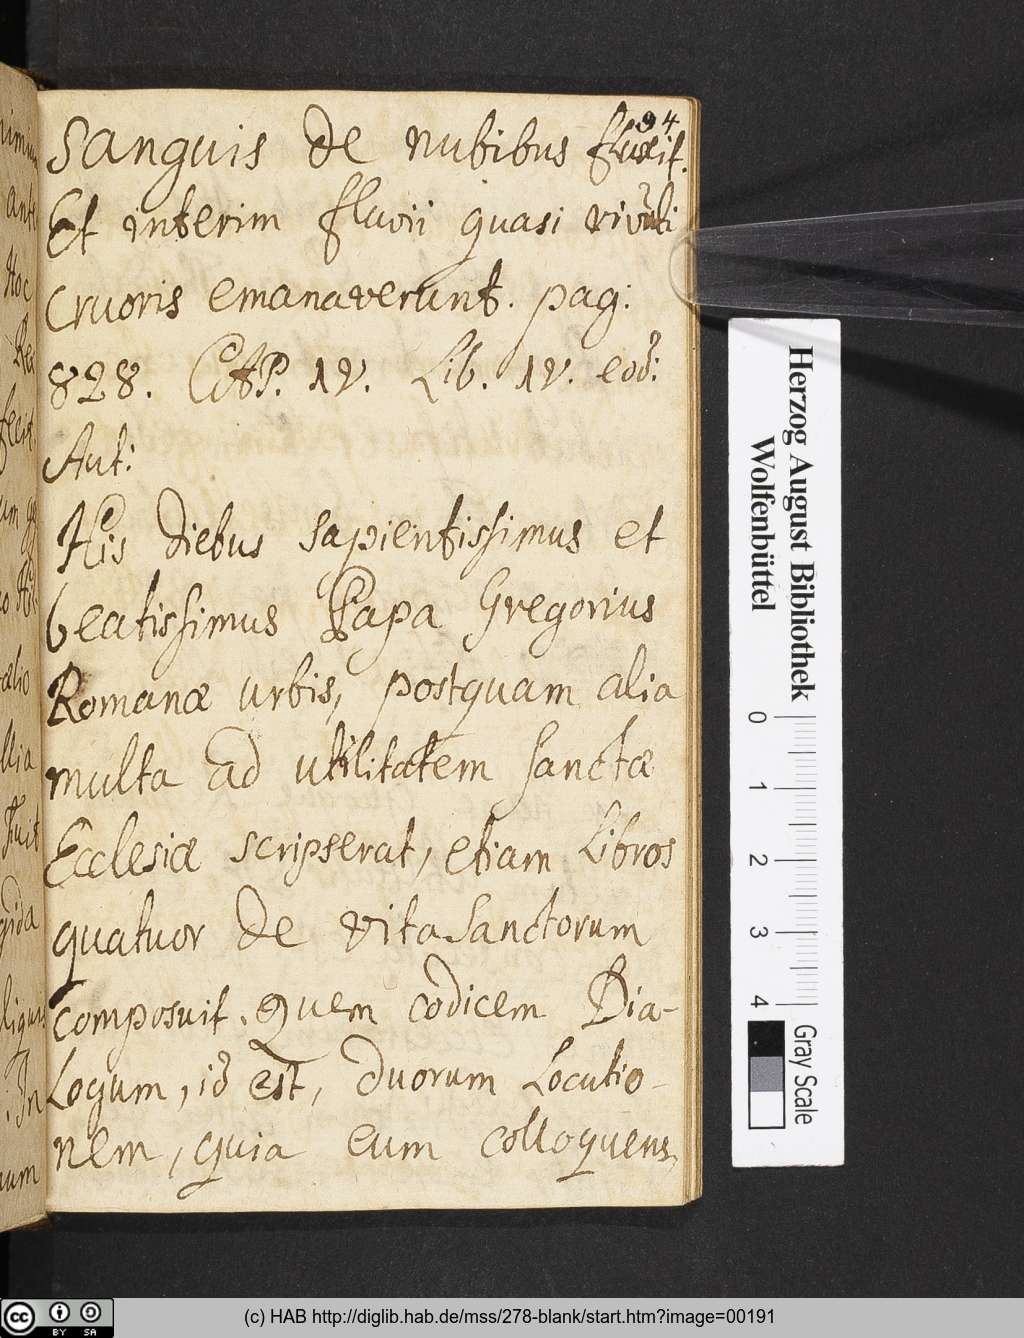 94
Sanguis de nubibus fluxit.
Et interim fluvii quasi rivuli
Cruoris emanaverunt. pag:
828. CAP. IV. Lib. IV. eod:
Aut:
His diebus sapientissimus et
beatissimus Papa Gregorius
Romanæ urbis, postquam alia
multa ad utilitatem sanctæ
Ecclesiæ scripserat, etiam Libros
quatuor de vita Sanctorum
composuit. Quem codicem Dia-
Logum, id est, duorum Locutio-
nem, quia eum colloquens
Herzog August Bibliothek
Wolfenbüttel
0 1 2 3 4
Gray Scale
cc BY SA
(c) HAB http://diglib.hab.de/mss/278-blank/start.htm?image=00191